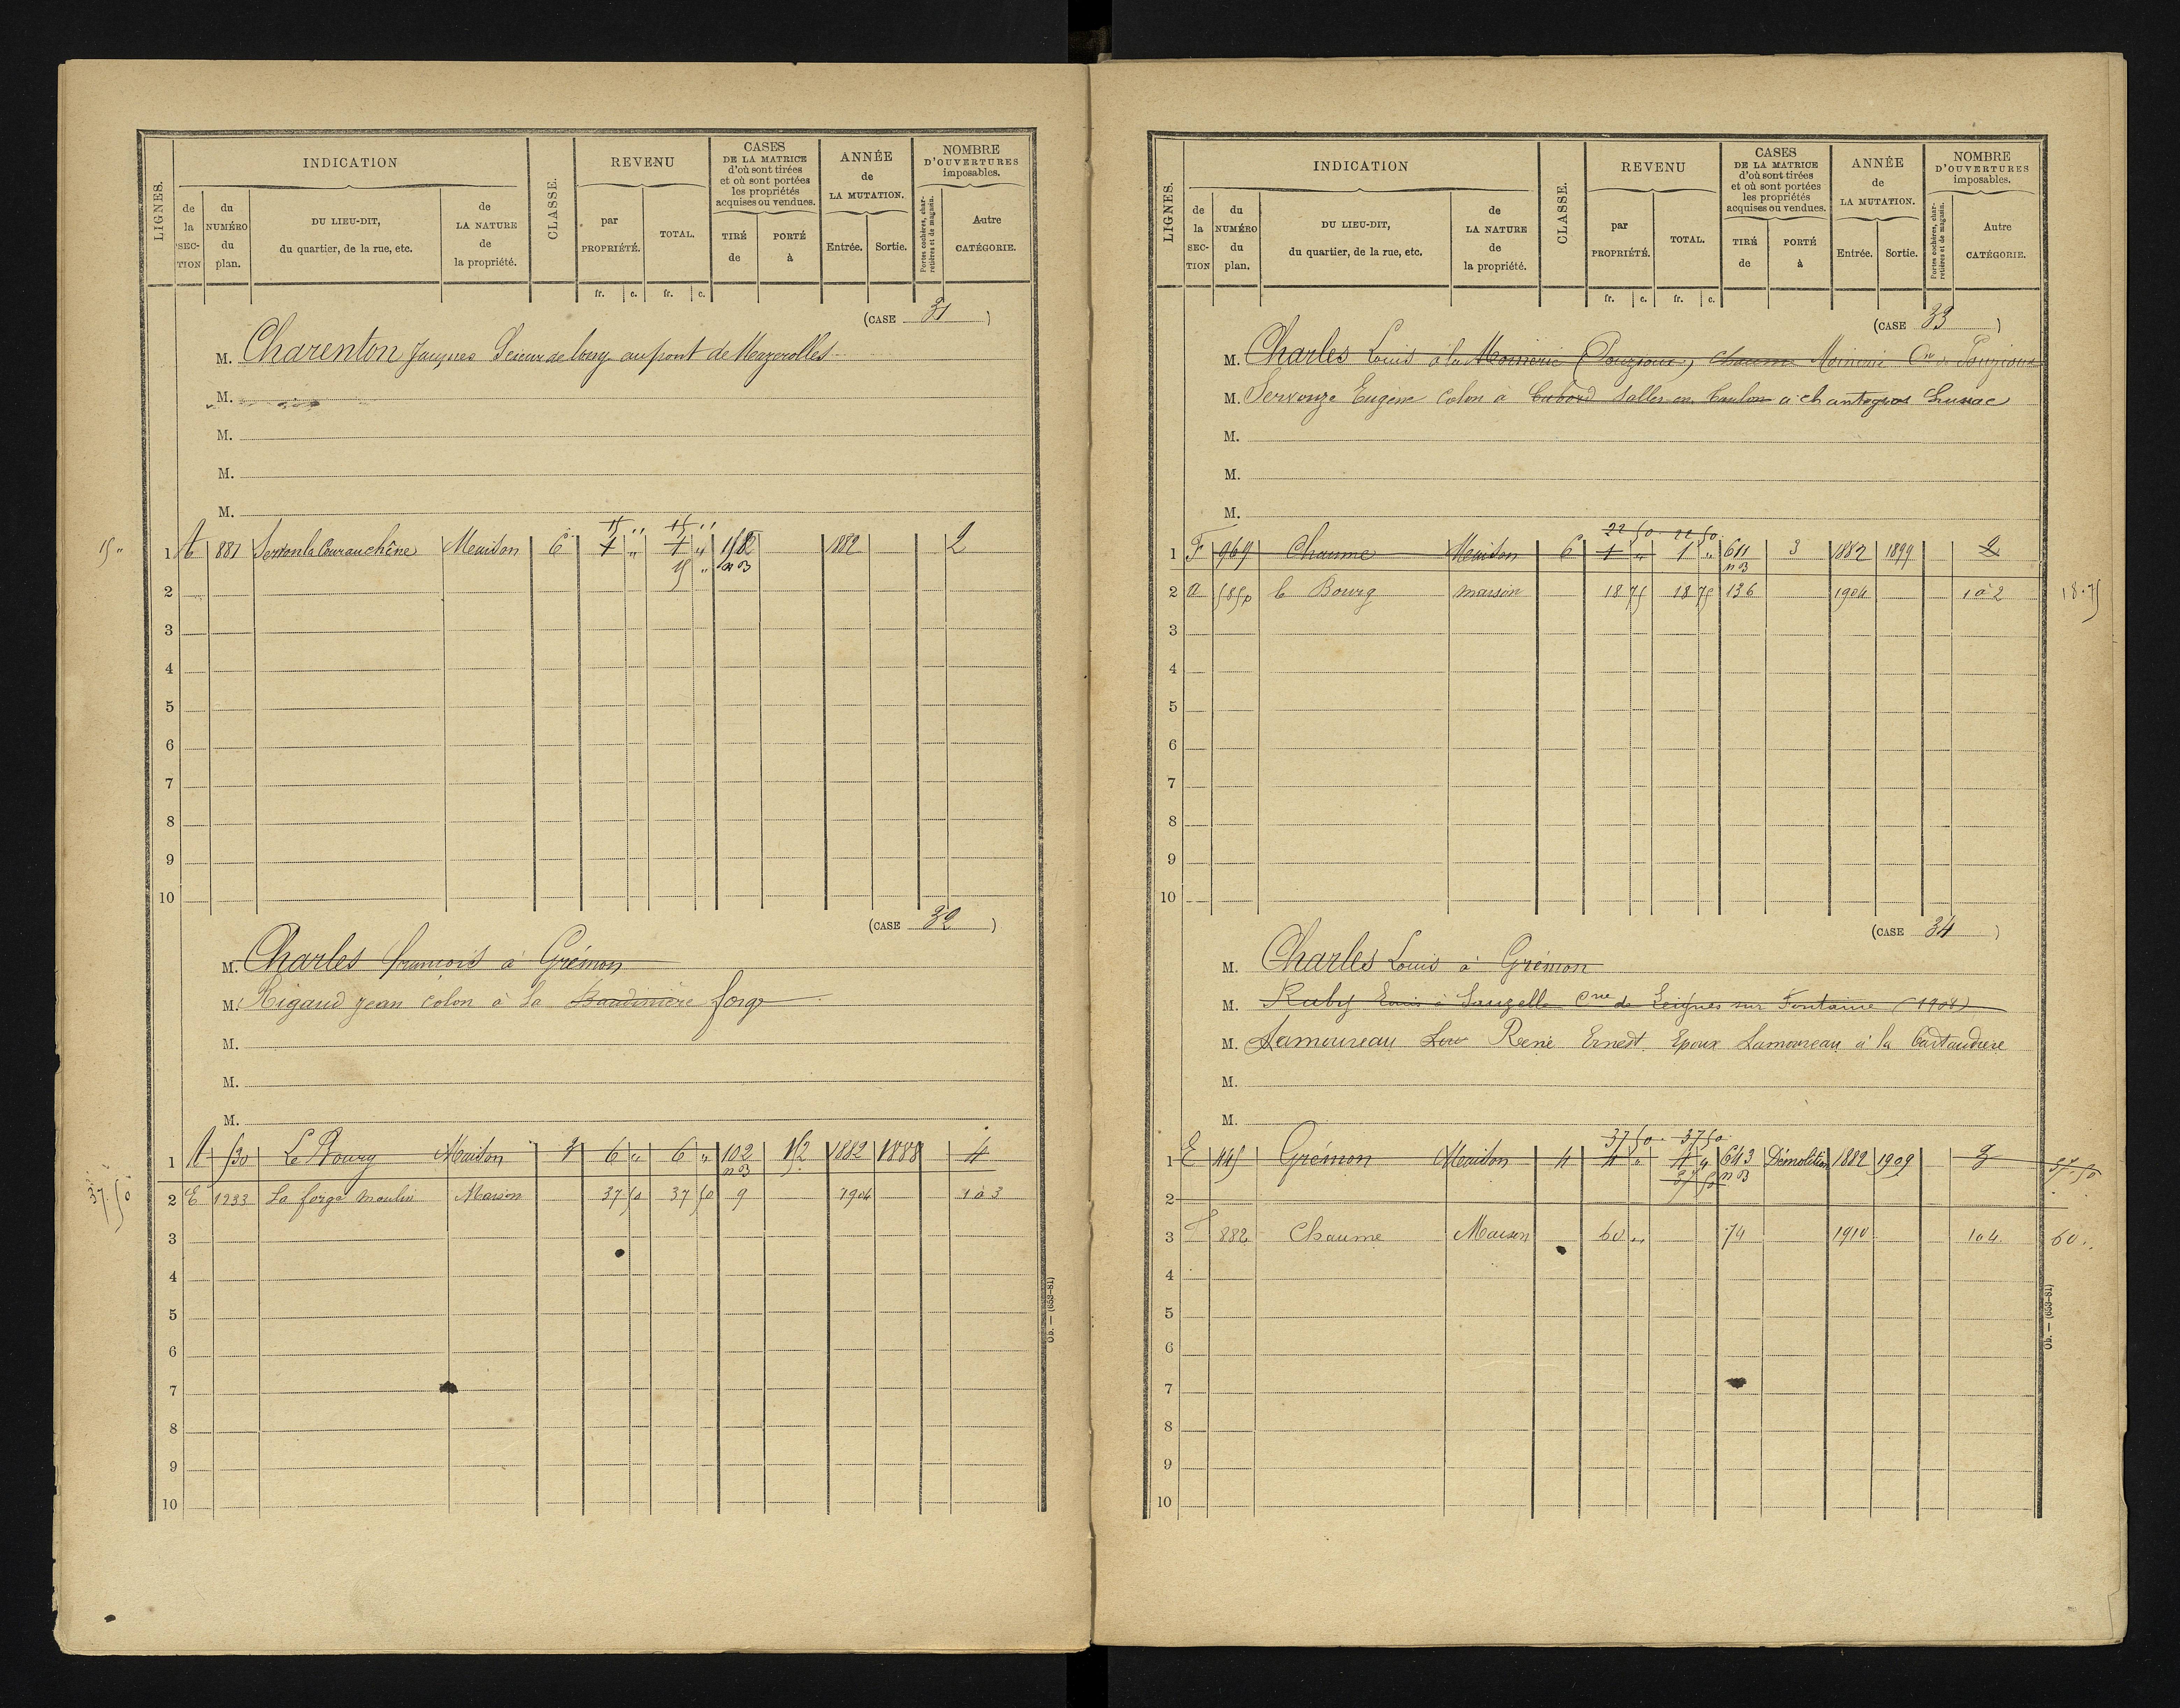 LIGNES.
INDICATION
de la SECTION
du NUMÉRO du plan.
DU LIEU-DIT, du quartier, de la rue, etc.
de LA NATURE de la propriété.
CLASSE.
REVENU
par PROPRIÉTÉ.
TOTAL.
fr. c. fr. c.
CASES DE LA MATRICE d'où sont tirées et où sont portées les propriétés acquises ou vendues.
TIRÉ de
PORTÉ à
ANNÉE de LA MUTATION.
Entrée. Sortie.
NOMBRE D'OUVERTURES imposables.
Portes cochères, charretières et de magasin.
Autre CATÉGORIE.
(CASE 31)
M. Charenton Jacques Scieur de long au pont de Mazerolles
M.
M.
M.
M.
15 "
15 " 15 "
1 881 Maison 6 1 " 1 " 1882 2
15 " n B
2
3
4
5
6
7
8
9
10
(CASE 32)
M. Charles françois à Grémon
M. Rigaud Jean colon à la Baudinière forge
M.
M.
M.
1 A 530 Le Bourg Maison 3 6 " 6 " 102 152 1882 1888 4
n B
37.50
2 E 1233 La forge moulin Maison 37 50 37 50 9 1904 1 à 3
3
4
5
6
7
8
9
10
Ob. — (653-81)
LIGNES.
INDICATION
de la SECTION
du NUMÉRO du plan.
DU LIEU-DIT, du quartier, de la rue, etc.
de LA NATURE de la propriété.
CLASSE.
REVENU
par PROPRIÉTÉ.
TOTAL.
fr. c. fr. c.
CASES DE LA MATRICE d'où sont tirées et où sont portées les propriétés acquises ou vendues.
TIRÉ de
PORTÉ à
ANNÉE de LA MUTATION.
Entrée. Sortie.
NOMBRE D'OUVERTURES imposables.
Portes cochères, charretières et de magasin.
Autre CATÉGORIE.
(CASE 33)
M. Charles Louis à la Moinerie (Pouzioux) Chaume Moinerie Cne de Pouzioux
M. Servouze Eugène colon à Cabord Salles en Toulon à chantegros Lussac
M.
M.
M.
22 50 22 50
1 F 969 Chaume Maison 6 1 " 1 " 611 3 1882 1899 2
n B
2 A 585p le Bourg maison 18 75 18 75 136 1904 1 à 2 18.75
3
4
5
6
7
8
9
10
(CASE 34)
M. Charles Louis à Grémon
M. Ruby Louis à Lauzelle Cne de Leignes sur Fontaine (1908)
M. Lamoureau René Ernest Epoux Lamoureau à la Cartaudière
M.
M.
37 50 37 50
1 E 445 Grémon Maison 4 4 " 4 " 643 Démolition 1882 1909 3 37.50
37 50 n B
2
3 F 882 Chaume Maison 60 " 74 1910 1 à 4 60 "
4
5
6
7
8
9
10
Ob. — (653-81)